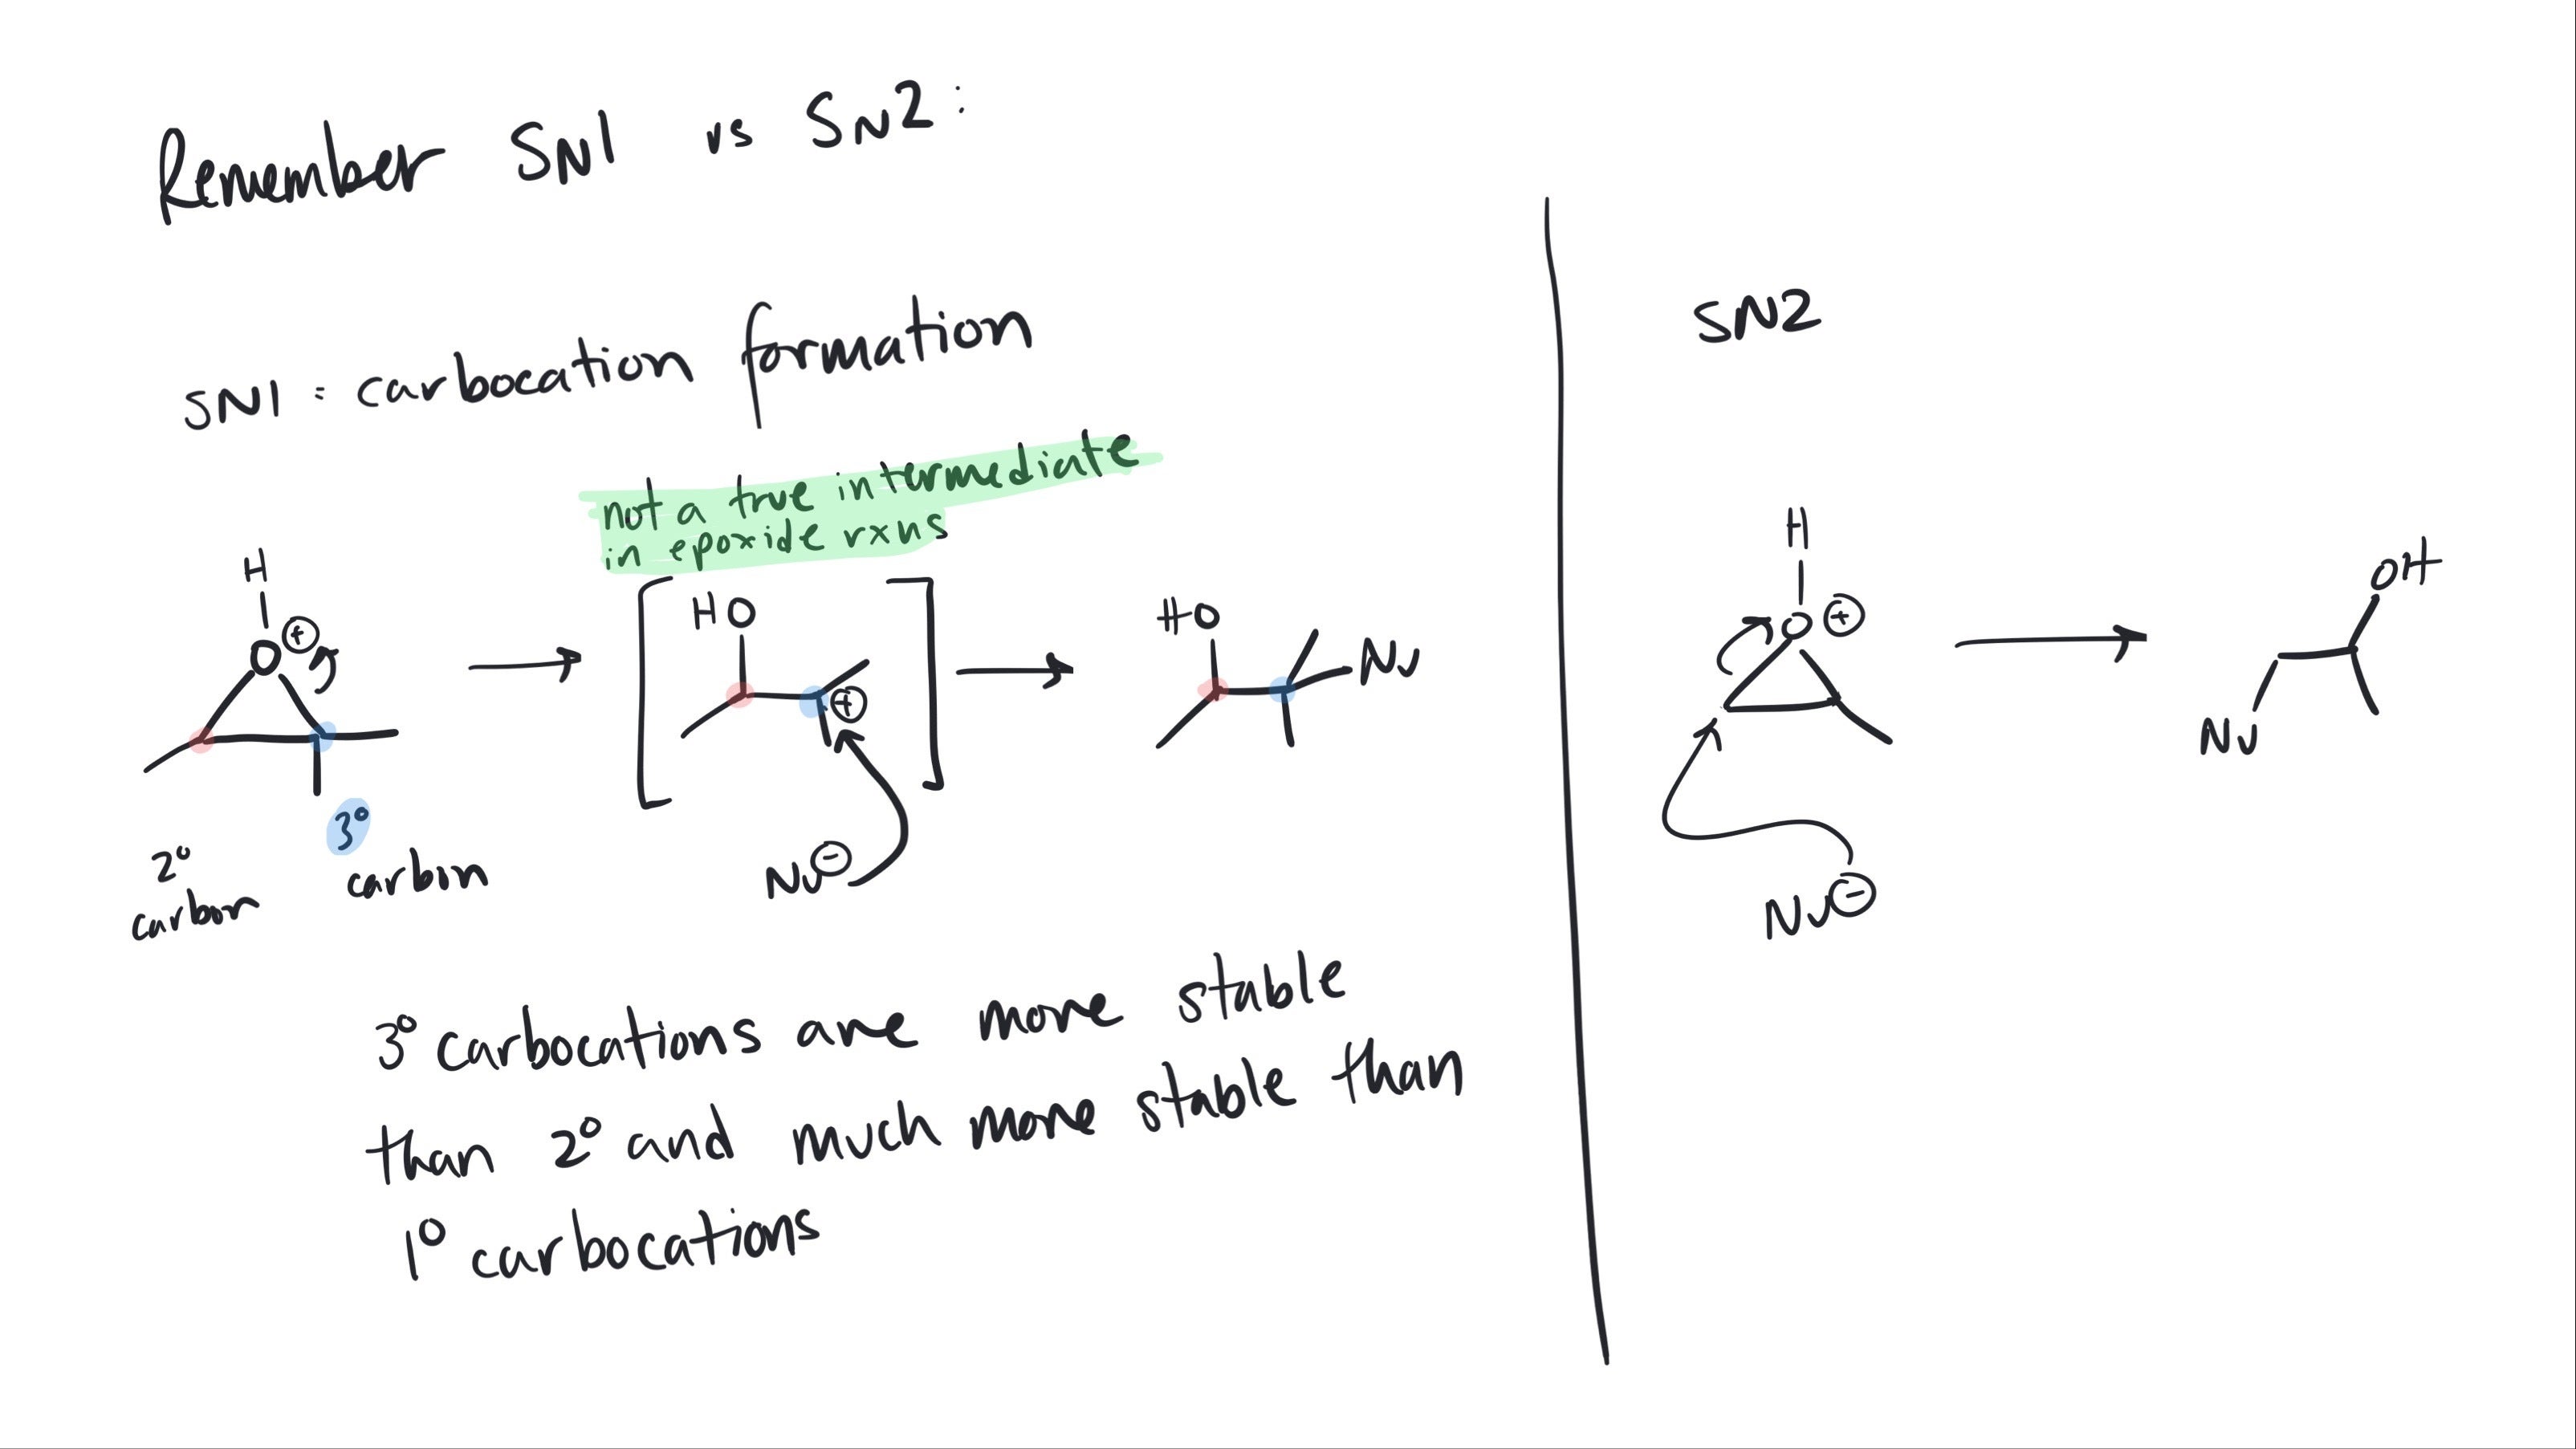 Remember SN1 vs SN2:
SN1 = carbocation formation
not a true intermediate
in epoxide rxns
H
O ⊕
2° carbon
3° carbon
HO
⊕
Nu⊖
HO
Nu
3° carbocations are more stable
than 2° and much more stable than
1° carbocations
SN2
H
O ⊕
Nu⊖
OH
Nu